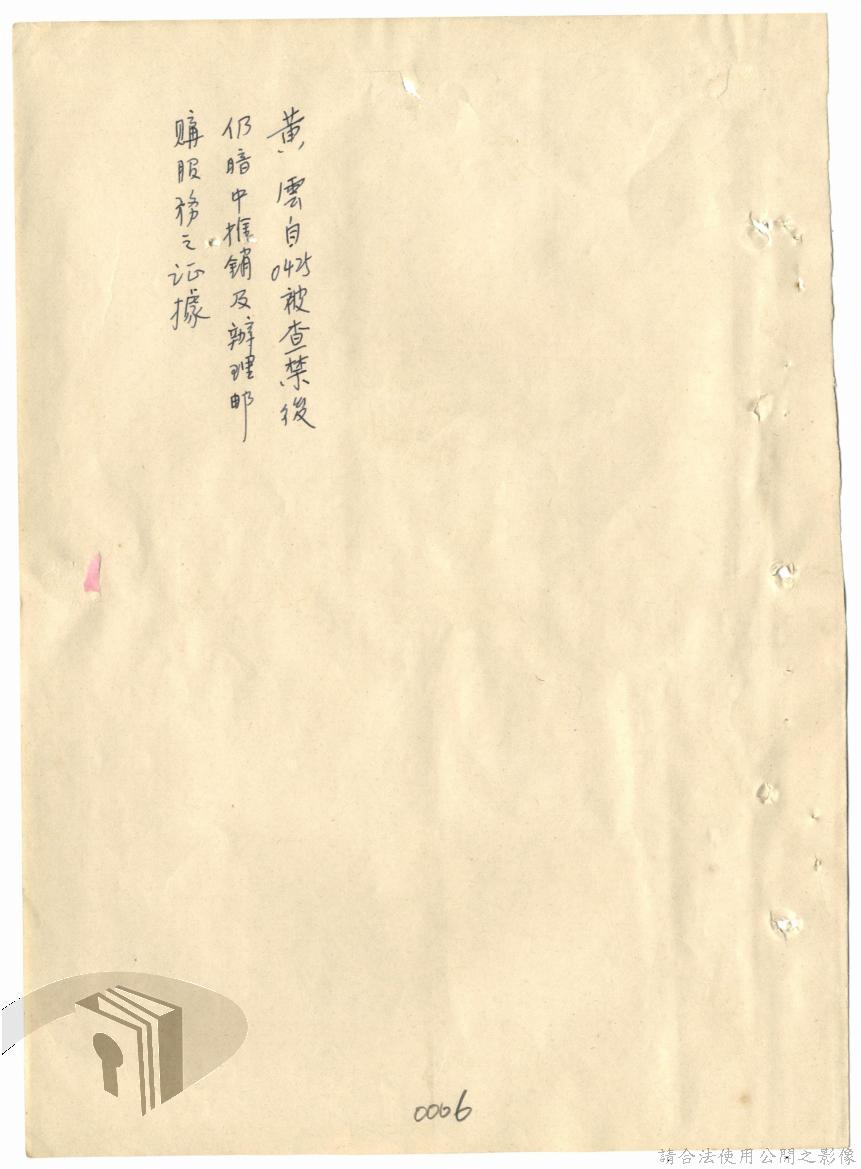 黄雲自0425被查禁後
仍暗中推銷及辦理邮
購服務之证據
0006
請合法使用公開之影像